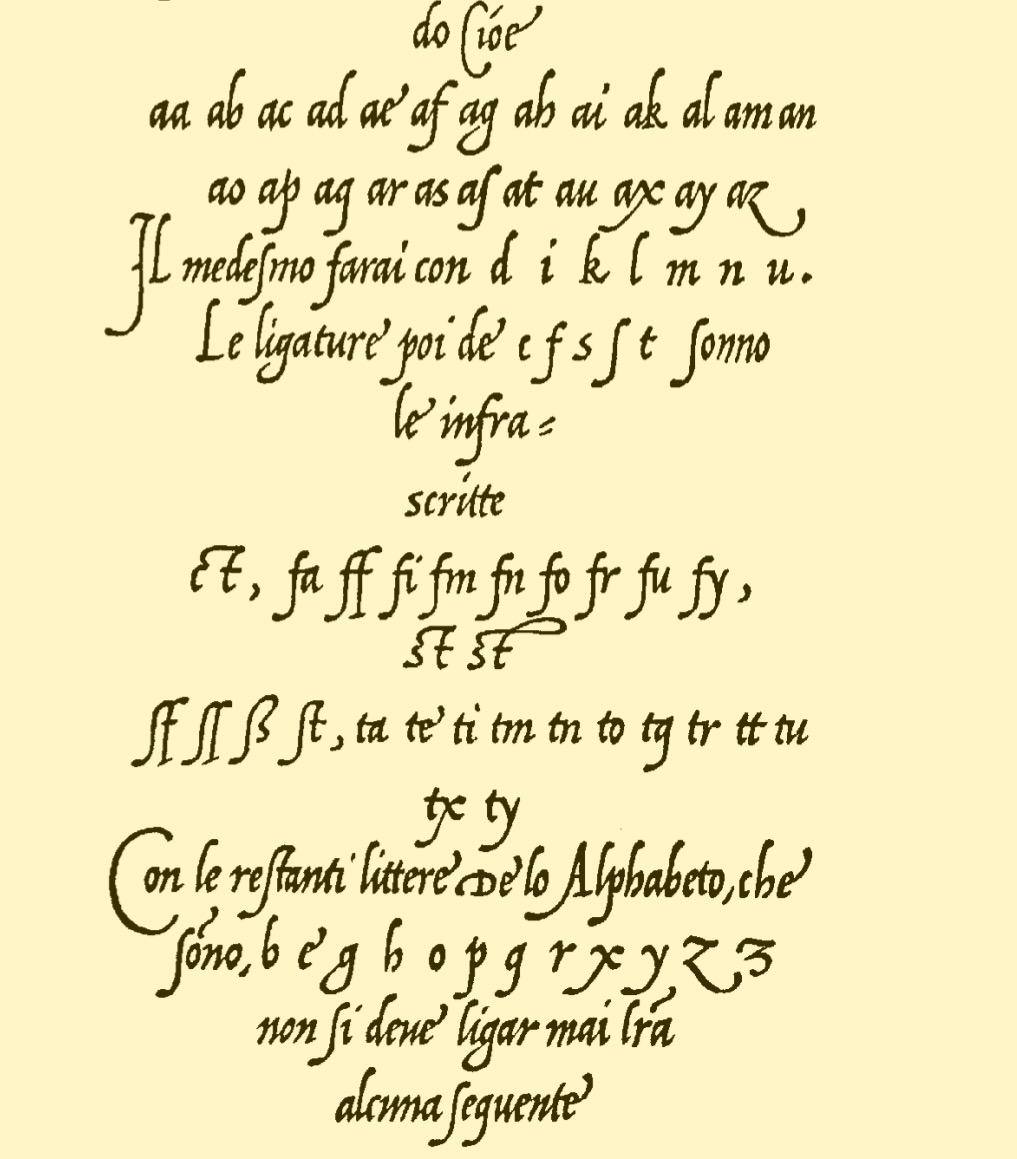 do Cióe
aa ab ac ad ae af ag ah ai ak al am an
ao ap aq ar as aſ at au ax ay az
Il medeſmo farai con d i k l m n u.
Le ligature poi de c f s ſ t ſonno
le infra=
scritte
ct, fa ff fi fm fn fo fr fu fy,
st st
ſf ſſ ß ſt, ta te ti tm tn to tq tr tt tu
tx ty
Con le reſtanti littere De lo Alphabeto, che
ſóno, b e g h o p q r x y z ʒ
non ſi deue ligar mai lr̃a
alcuna ſequente